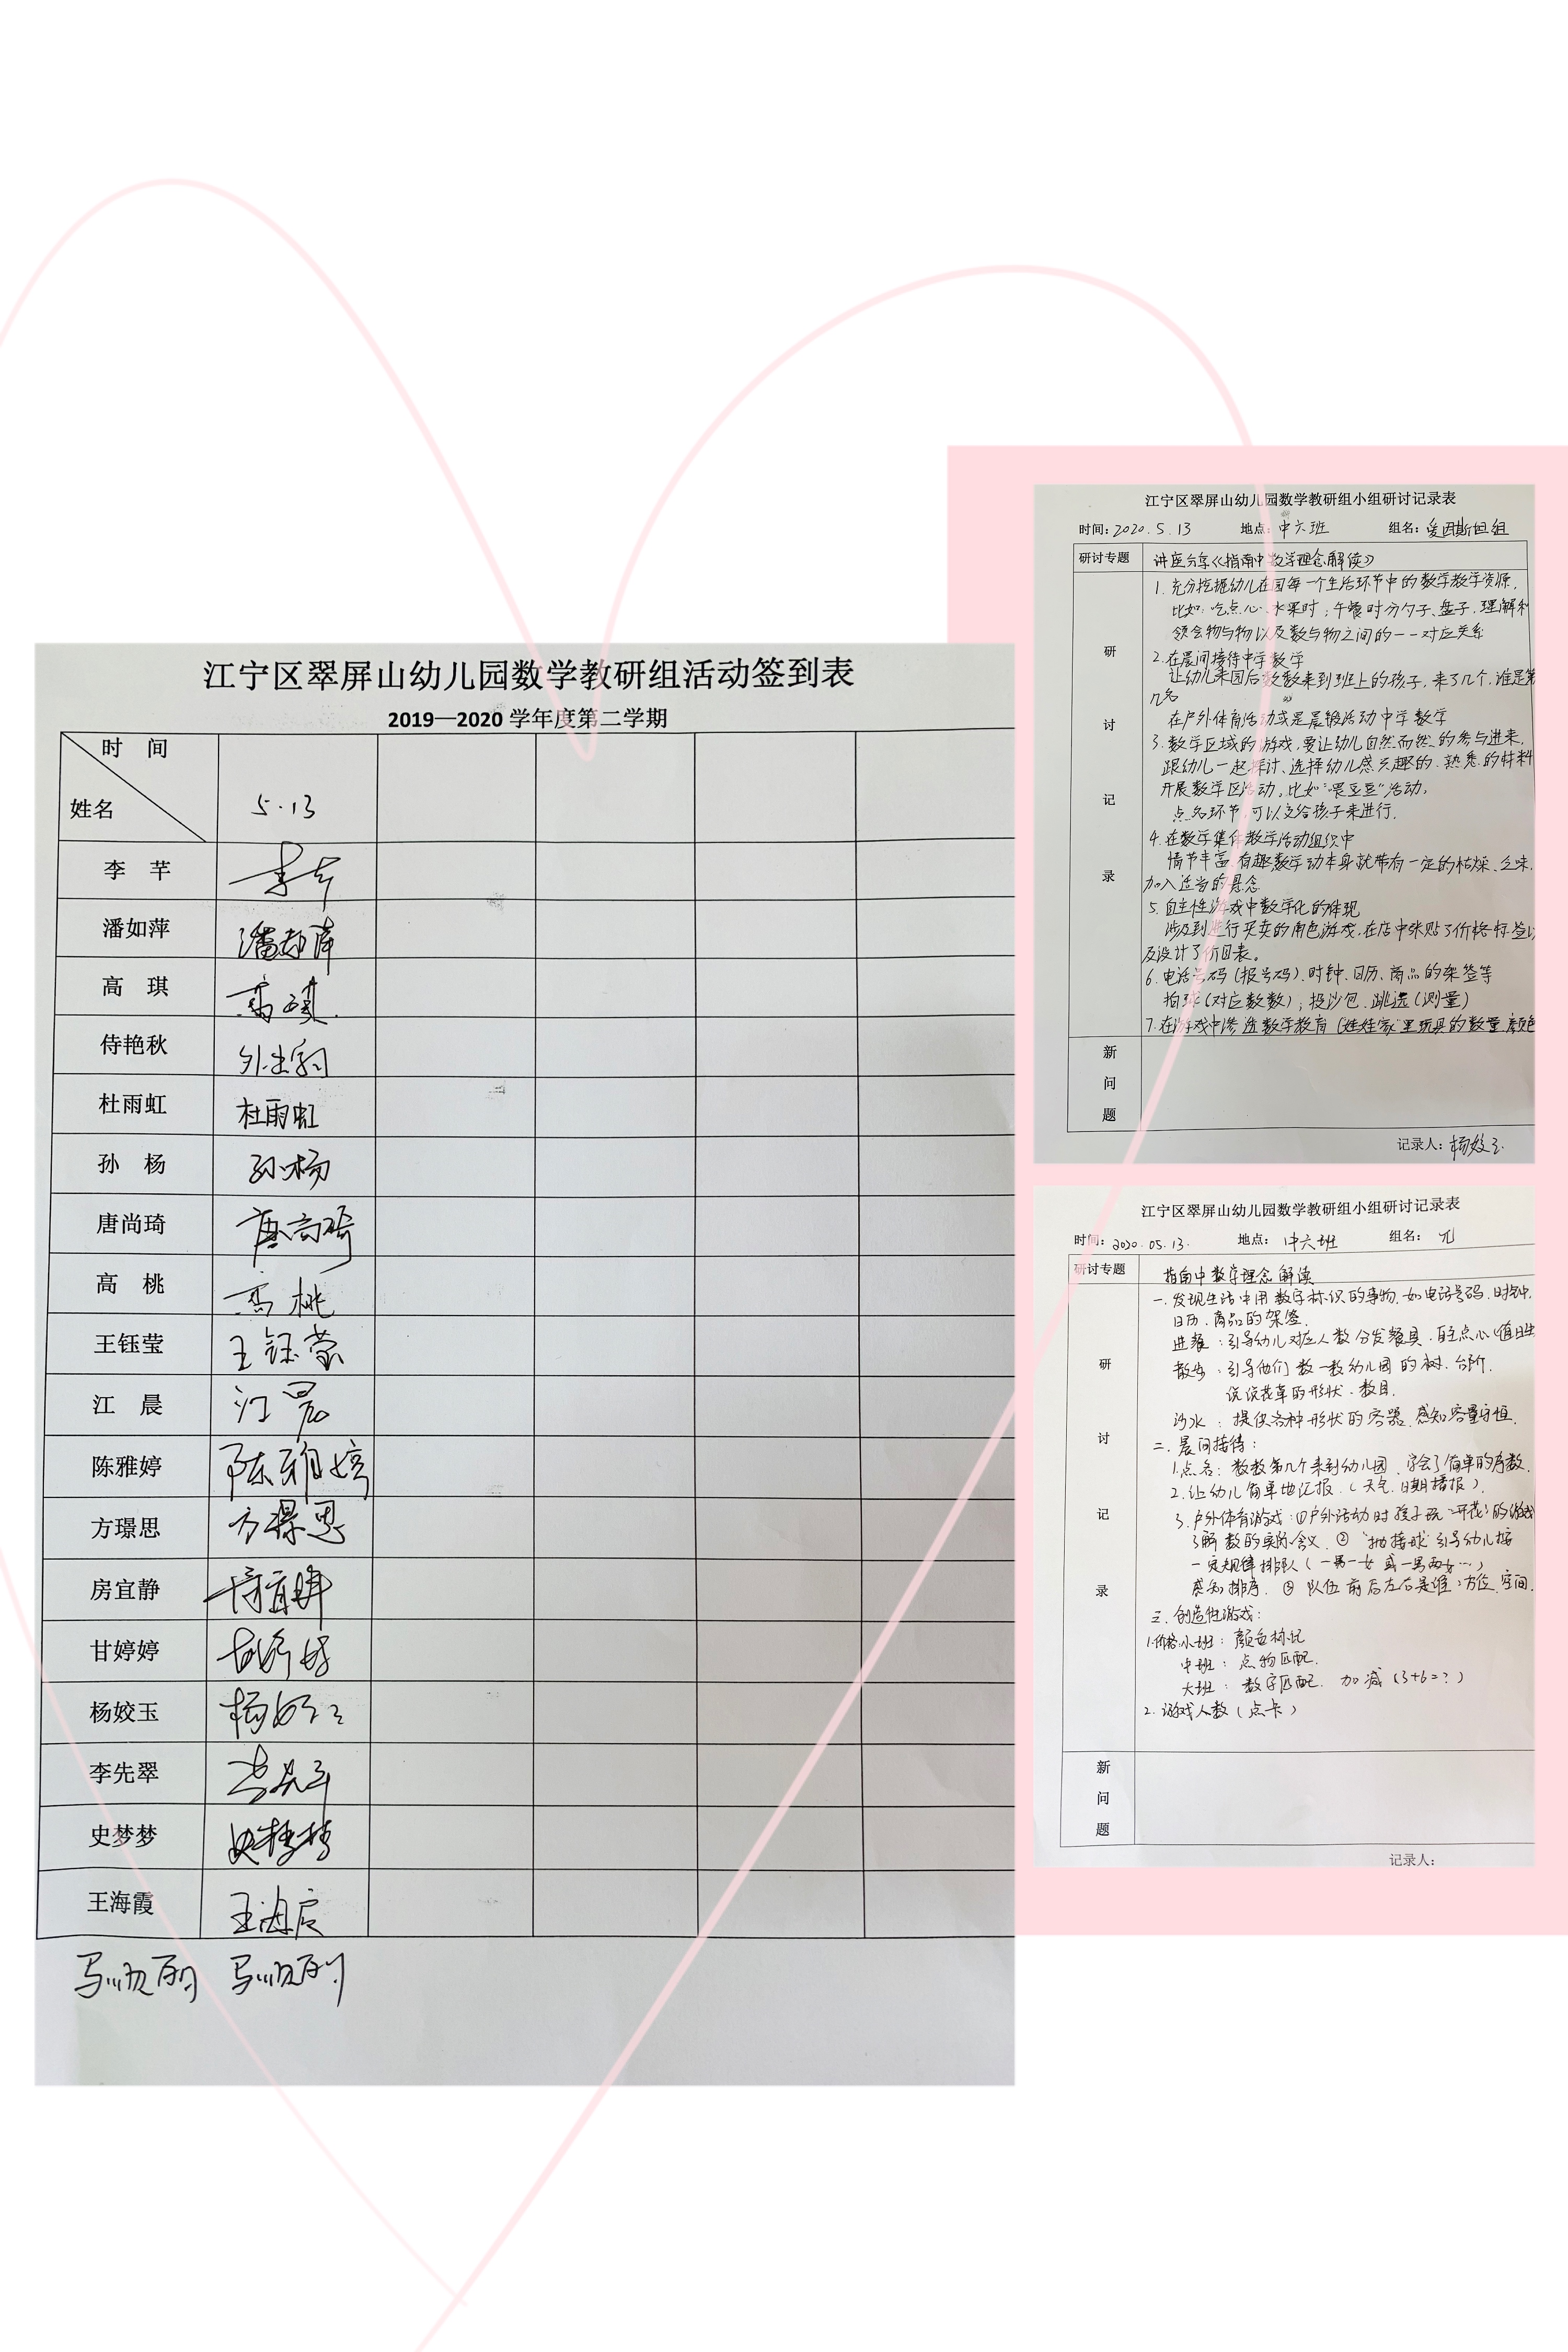 江宁区翠屏山幼儿园数学教研组活动签到表
2019—2020 学年度第二学期
时 间
姓名
5.13
李 芊 李芊
潘如萍 潘如萍
高 琪 高琪
侍艳秋 外出学习
杜雨虹 杜雨虹
孙 杨 孙杨
唐尚琦 唐尚琦
高 桃 高桃
王钰莹 王钰莹
江 晨 江晨
陈雅婷 陈雅婷
方璟思 方璟思
房宜静 房宜静
甘婷婷 甘婷婷
杨姣玉 杨姣玉
李先翠 李先翠
史梦梦 史梦梦
王海霞 王海霞
江宁区翠屏山幼儿园数学教研组小组研讨记录表
时间: 2020.5.13 地点: 中六班 组名: 爱因斯坦组
研讨专题 讲座分享《指南中数学理念解读》
研讨记录
1. 充分挖掘幼儿在园每一个生活环节中的数学教学资源,
比如: 吃点心、水果时; 午餐时分勺子、盘子, 理解和
领会物与物以及数与物之间的一一对应关系
2. 在晨间接待中学数学
让幼儿来园后数数来到班上的孩子, 来了几个, 谁是第
几名
在户外体育活动或是晨锻活动中学数学
3. 数学区域的游戏, 要让幼儿自然而然的参与进来,
跟幼儿一起探讨、选择幼儿感兴趣的、熟悉的材料
开展数学区活动, 比如:"喂豆豆"活动,
点名环节, 可以交给孩子来进行.
4. 在数学集体教学活动组织中
情节丰富、有趣,数学动本身就带有一定的枯燥、乏味,
加入适当的悬念
5. 自主性游戏中数学化的体现
涉及到进行买卖的角色游戏, 在店中张贴了价格标签以
及设计了价目表。
6. 电话号码 (报号码)、时钟、日历、商品的架签等
拍球 (对应数数); 投沙包、跳远 (测量)
7. 在游戏中渗透数学教育 ("娃娃家"里玩具的数量 颜色
新问题
记录人: 杨姣玉
江宁区翠屏山幼儿园数学教研组小组研讨记录表
时间: 2020.05.13. 地点: 中六班 组名: π
研讨专题 指南中数学理念解读
研讨记录
一. 发现生活中用数字标识的事物, 如电话号码、时钟,
日历、商品的架签.
进餐: 引导幼儿对应人数分发餐具, 自主点心 (值日生
散步: 引导他们数一数幼儿园的树、台阶.
说说花草的形状、数目.
沙水: 提供各种形状的容器, 感知容量守恒.
二. 晨间接待:
1. 点名: 数数第几个来到幼儿园, 学会了简单的序数.
2. 让幼儿简单地汇报. (天气、日期播报).
3. 户外体育游戏: ①户外活动时孩子玩"开花"的游戏
了解数的实际含义. ② "抛接球" 引导幼儿按
一定规律排队 (一男一女 或一男两女…)
感知排序. ③ 队伍前后左右是谁: 方位、空间.
三. 创造性游戏:
1. 价格: 小班: 颜色标记
中班: 点物匹配.
大班: 数字匹配. 加减 (3+6=?)
2. 游戏人数 (点卡)
新问题
记录人: